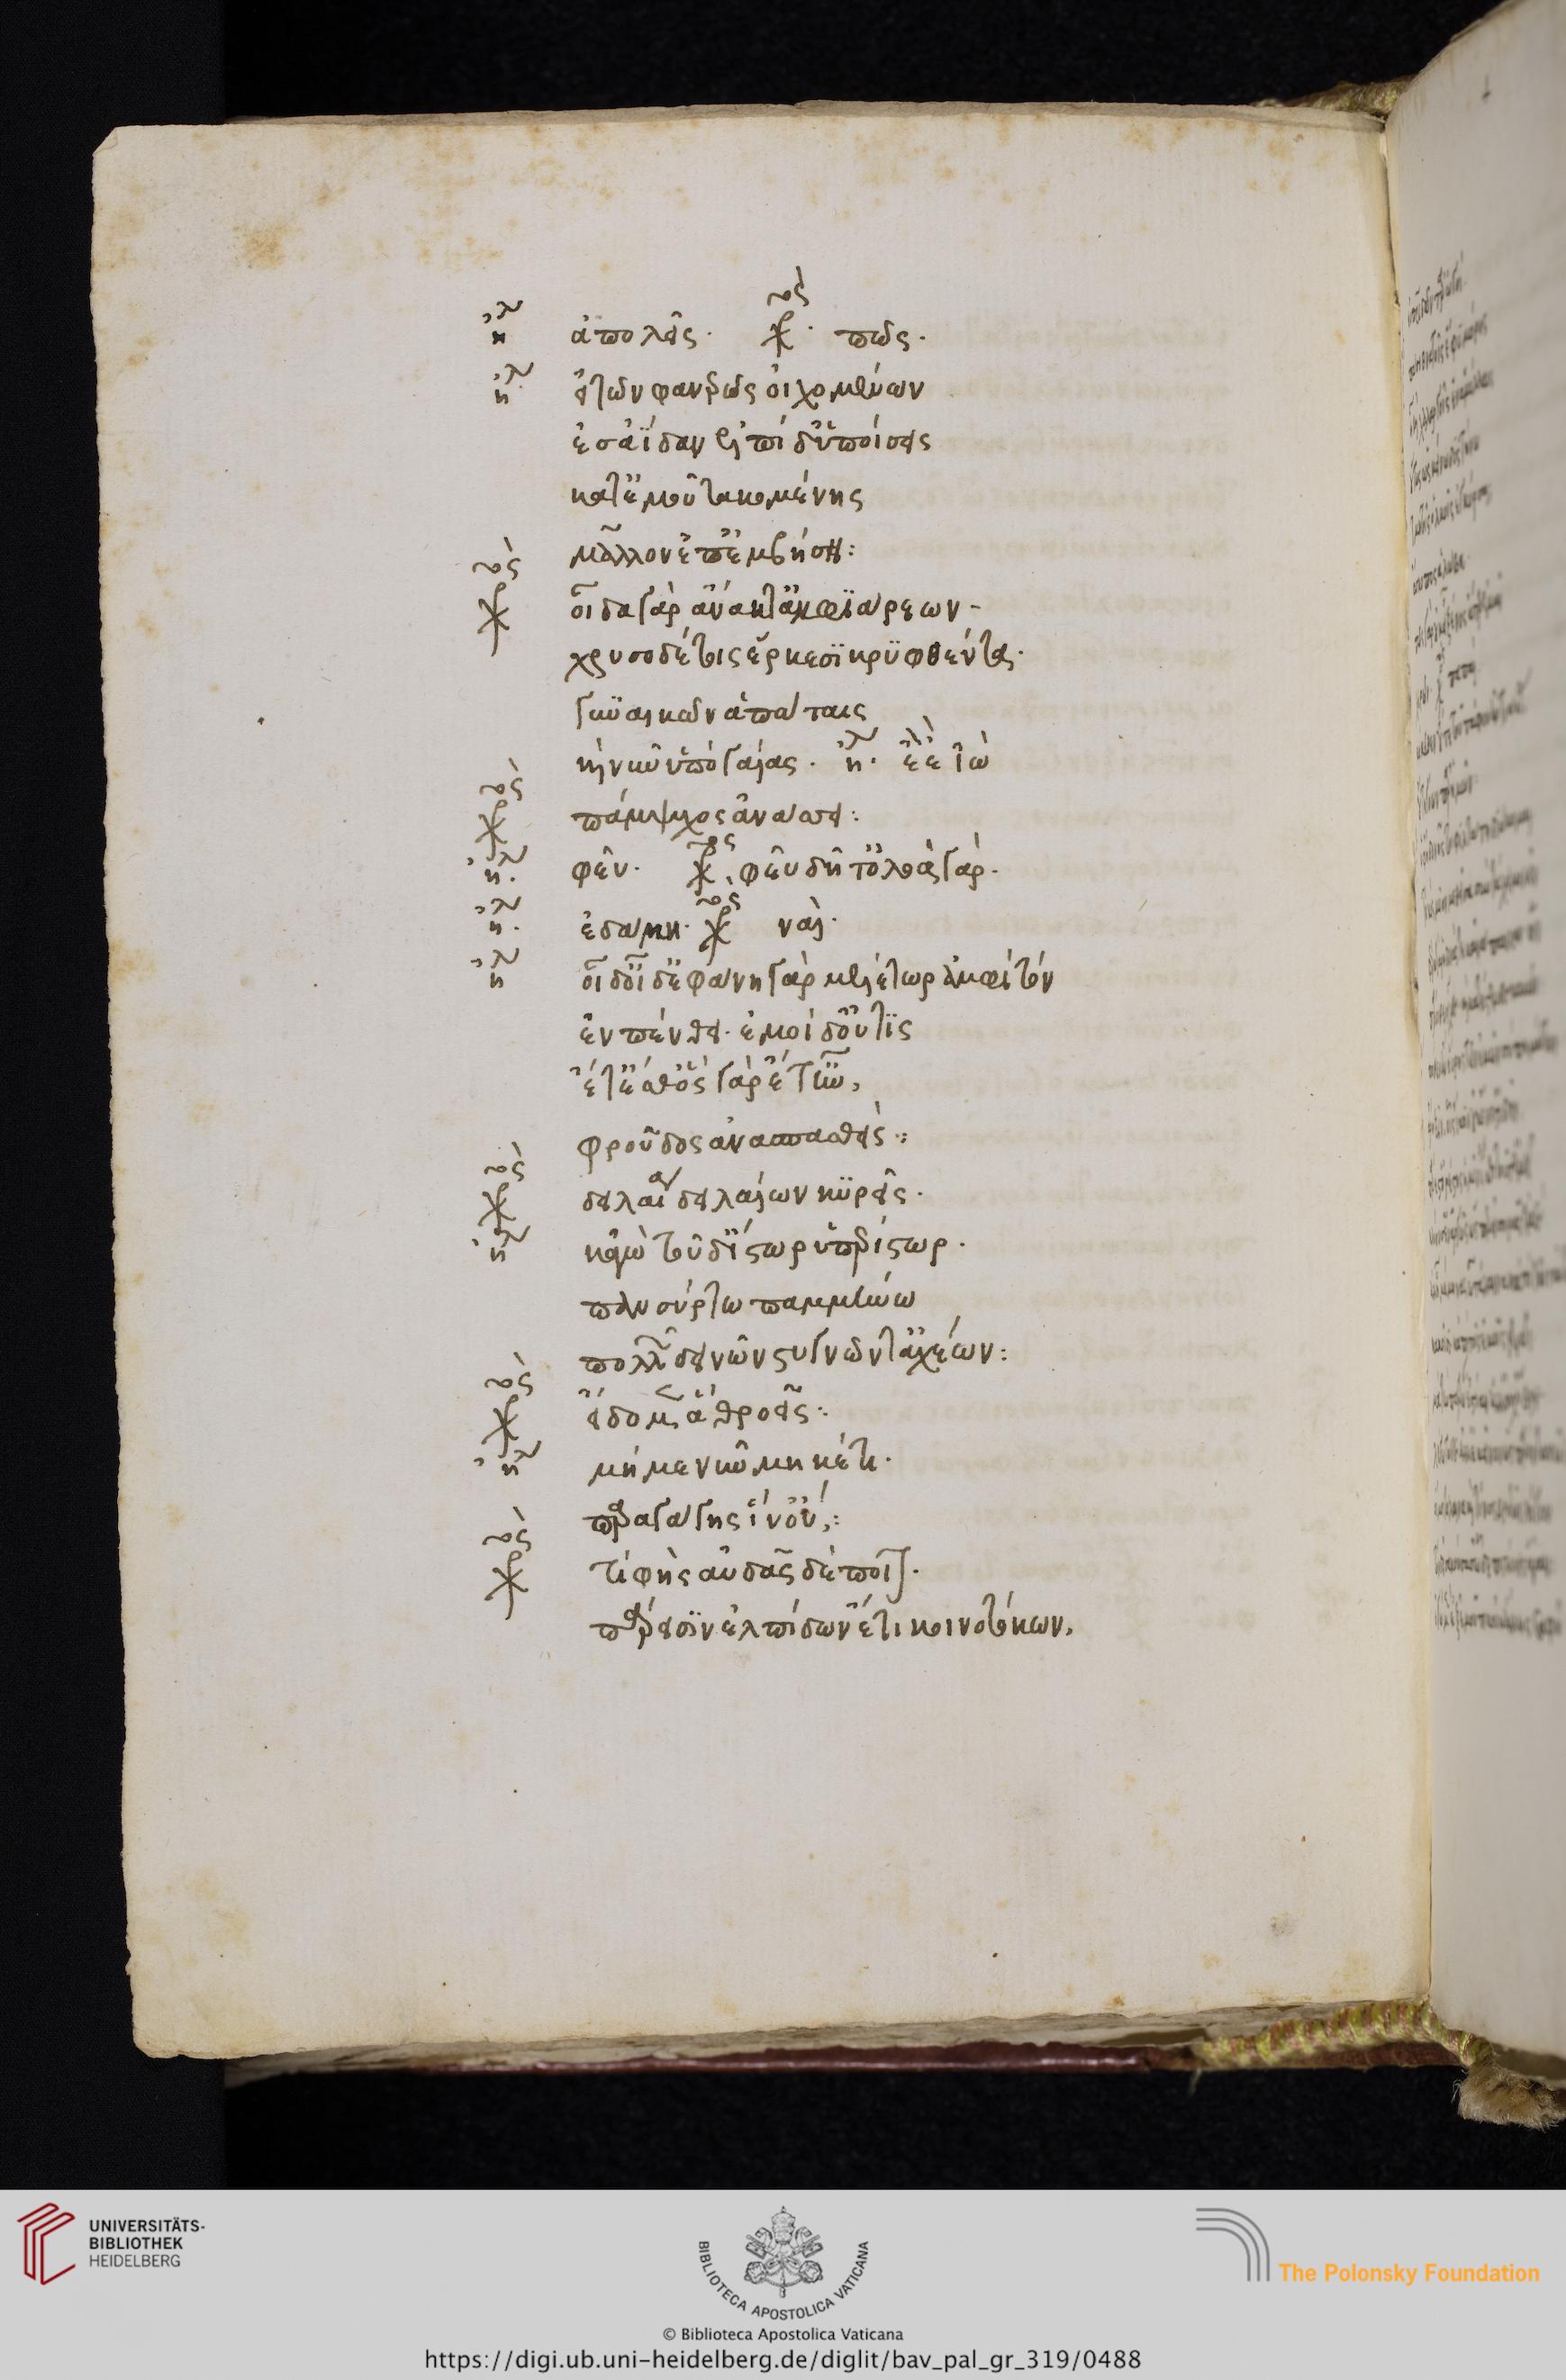 ηλ ἀπολεῖς· χορὸς · πῶς·
ηλ εἰ τῶν φανερῶς οἰχομένων
ἐσ ἀΐδαν ἐλπίδ' ὑποίσεις
κατ' ἐμοῦ τακομένης
μᾶλλον ἐπ' ἐμβήσῃ:
χορὸς οἶδα γὰρ ἄνακτ' ἀμφιάρεων-
χρυσοδέτοις ἕρκεσι κρυφθέντας·
γυναικῶν ἀπάταις
καὶ νῦν ὑπὸ γαίας · ηλ. ἒ ἒ ἰὼ
χορὸς πάμψυχος ἀνάσσει:
ηλ. φεῦ· χορὸς. φεῦ δῆτ' ὀλοὰ γὰρ·
ηλ. ἐδάμη· χορὸς ναὶ·
ηλ οἶδ' οἶδ' ἐφάνη γὰρ μελέτωρ ἀμφὶ τὸν
ἐν πένθει· ἐμοὶ δ' οὔτις
ἔτ' ἔσθ' ὃς γὰρ ἔτ' ἦν,
φροῦδος ἀναρπασθεὶς:
χορὸς δειλαία δειλαίων κυρεῖς·
ηλ κἀγὼ τοῦδ' ἵστωρ ὑπερίστωρ·
πανσύρτω παμμήνω
πολλῶν δεινῶν στυγνῶν τ' ἀχέων:
χορὸς εἴδομεν ἃ θροεῖς:
ηλ μή με νῦν μηκέτι·
παραγάγης ἵν' οὐ,:
χορὸς τί φὴς αὐδᾶς δὲ ποῖον·
πάρεισιν ἐλπίδων ἔτι κοινοτόκων,
UNIVERSITÄTS-
BIBLIOTHEK
HEIDELBERG
BIBLIOTECA APOSTOLICA VATICANA
The Polonsky Foundation
© Biblioteca Apostolica Vaticana
https://digi.ub.uni-heidelberg.de/diglit/bav_pal_gr_319/0488